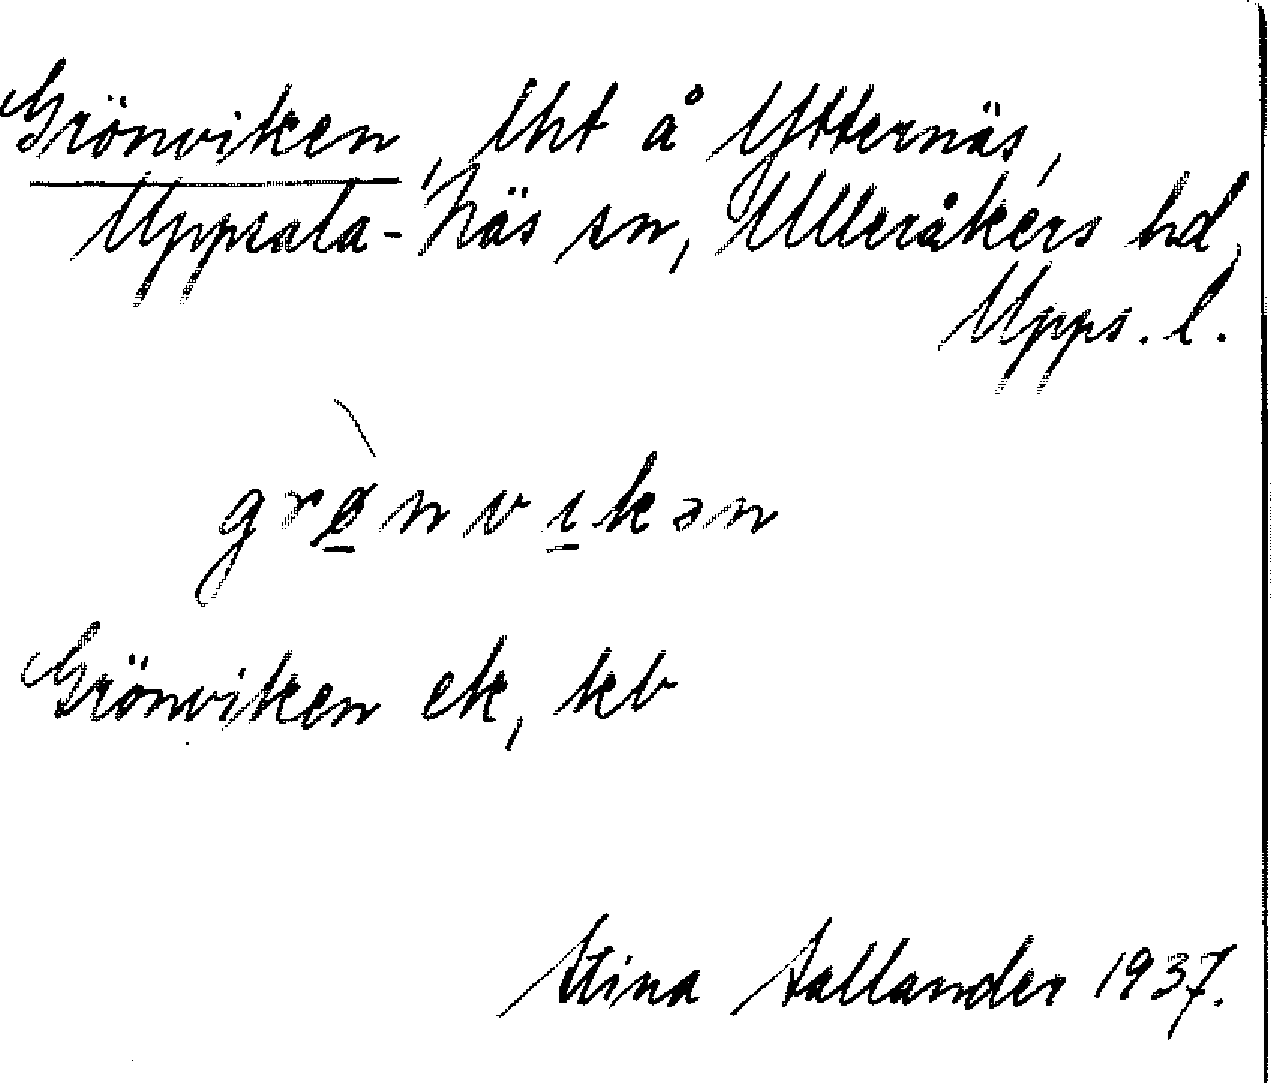 Grönviken, lht å Ytternäs,
Uppsala-Näs sn, Ulleråkers hd,
Upps. l.
grø̠̀nvı̠kən
Grönviken ek, kb
Stina Sallander 1937.